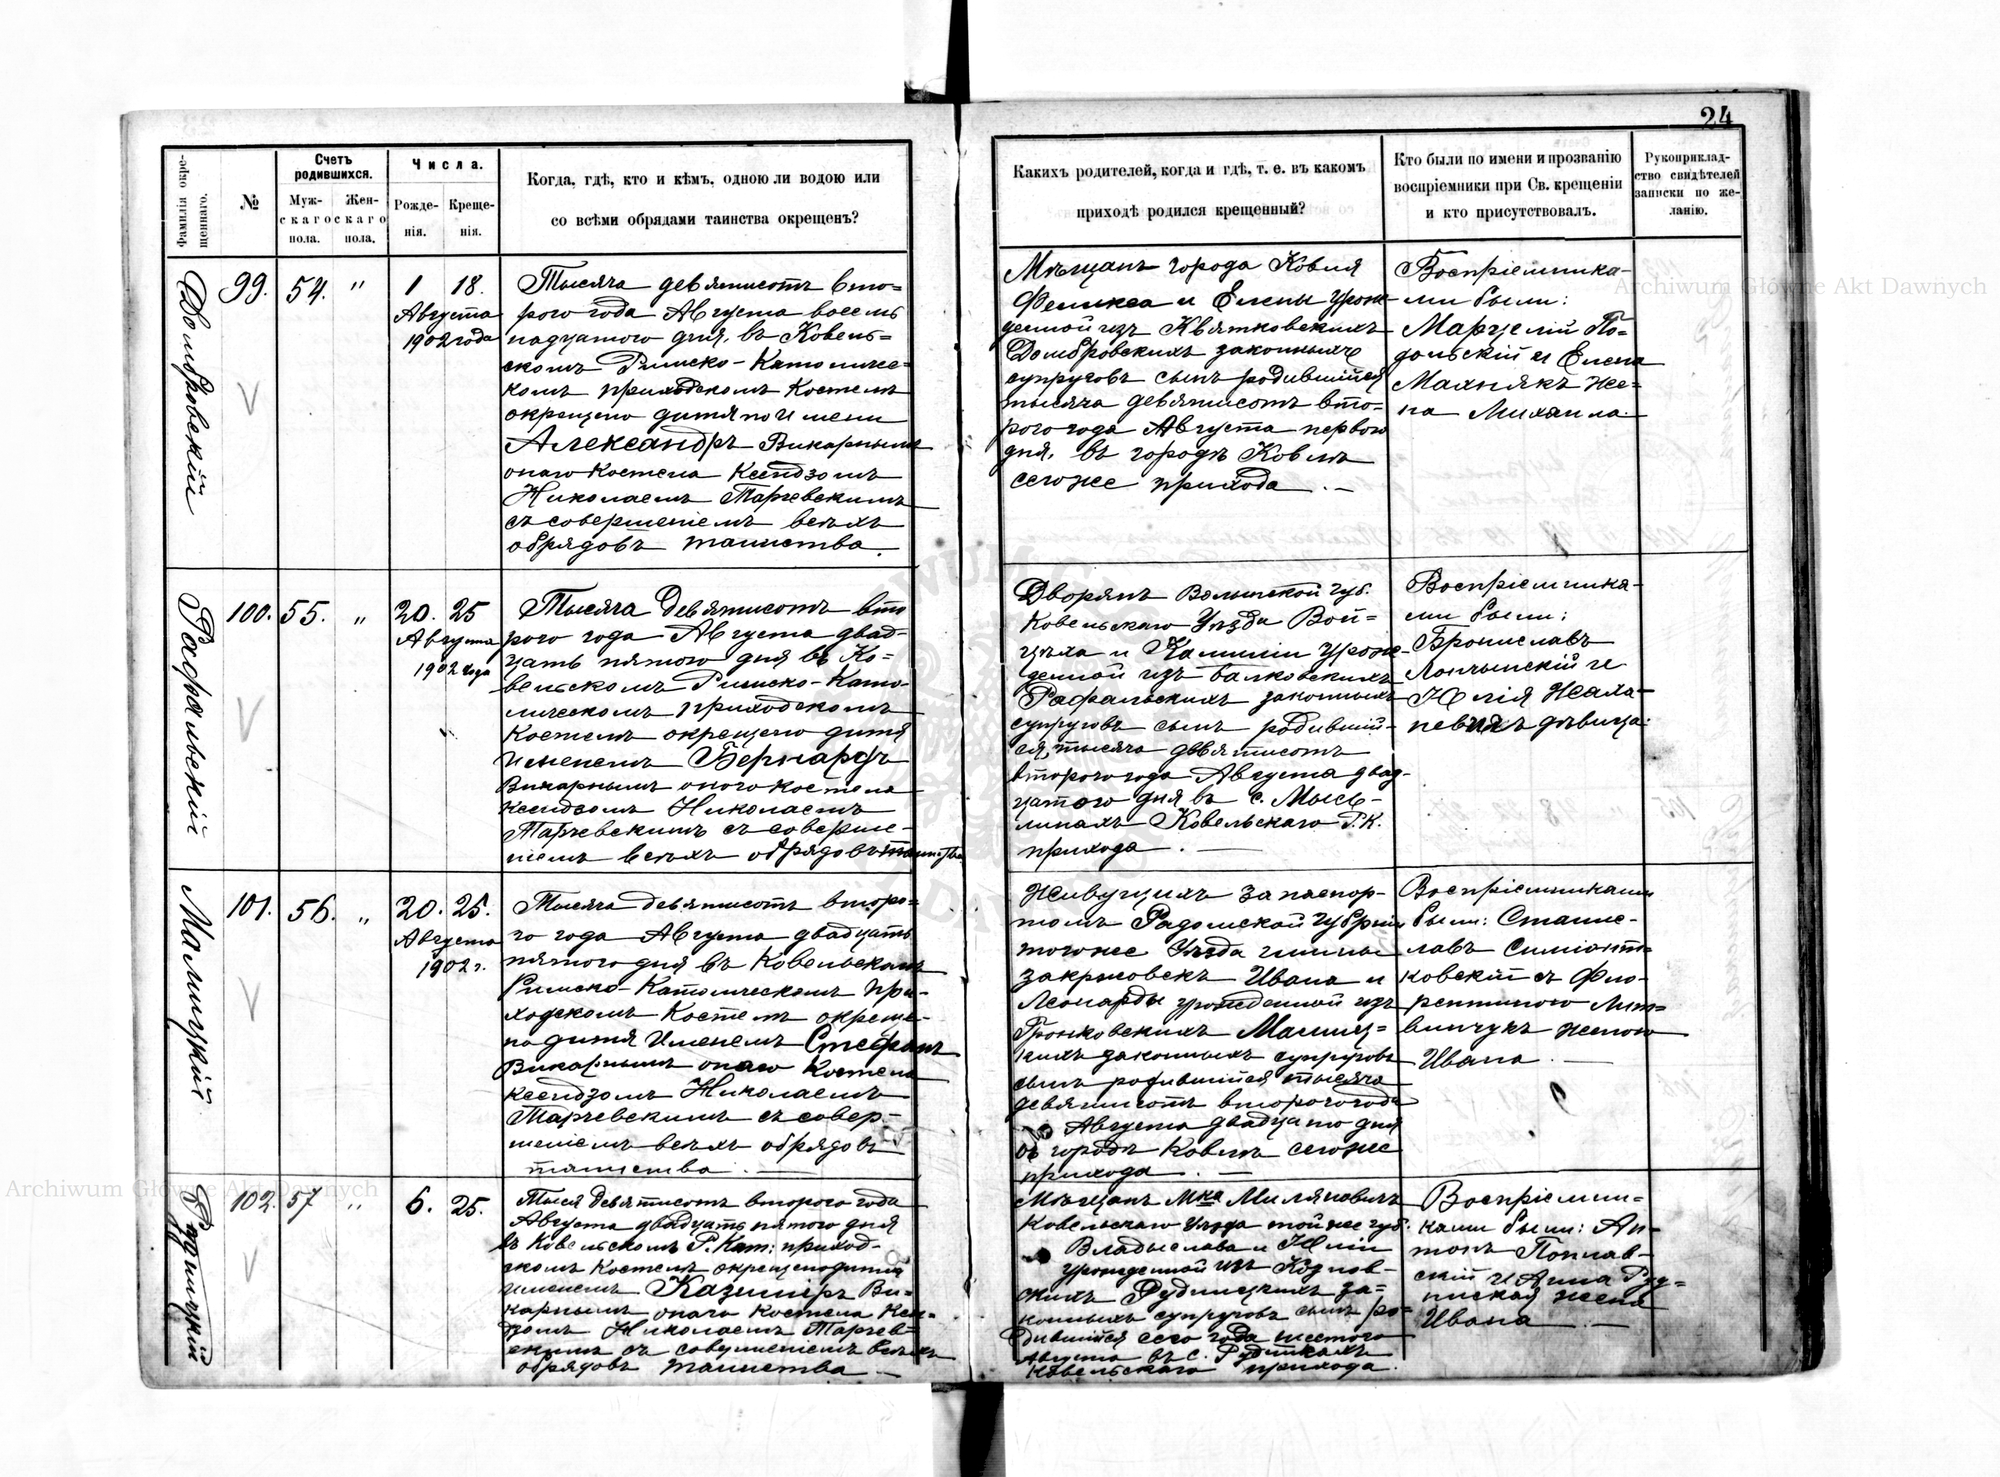 24
Фамилія окре-
щеннаго.
№
Счетъ
родившихся.
Муж-
скаго
пола.
Жен-
скаго
пола.
Числа.
Рожде-
нія.
Креще-
нія.
Когда, гдѣ, кто и кѣмъ, одною ли водою или
со всѣми обрядами таинства окрещенъ?
Какихъ родителей, когда и гдѣ, т. е. въ какомъ
приходѣ родился крещенный?
Кто были по имени и прозванію
воспріемники при Св. крещеніи
и кто присутствовалъ.
Рукоприклад-
ство свидѣтелей
записки по же-
ланію.
Домбровскій
99.
54.
"
1 18.
Августа
1902 года
Тысяча девятисотъ вто-
рого года Августа восем
надцатого дня, въ Ковель-
скомъ Римско-Католиче-
комъ приходскомъ костелѣ
окрещено дитя по имени
Александръ Викарнымъ
онаго костела Ксендзомъ
Николаемъ Тарчевскимъ
съ совершеніемъ всѣхъ
обрядовъ таинства.
Мѣщанъ города Ковля
Феликса и Елены урож-
денной изъ Квятковскихъ
Домбровскихъ законныхъ
супруговъ сынъ родившійся
тысяча девятисотъ вто-
рого года Августа первого
дня, въ городѣ Ковлѣ
сегоже прихода. —
Воспріемника-
ми были:
Марцелій По-
дольскій и Елена
Махнякъ же-
на Михаила.
Рафальскій
100.
55.
"
20. 25
Августа
1902 года
Тысяча девятисотъ вто
рого года Августа двад-
цать пятого дня въ Ко-
вельскомъ Римско-Като-
лическомъ приходскомъ
костелѣ окрещено дитя
именемъ Бернардъ
Викарнымъ оного костела
ксендзомъ Николаемъ
Тарчевскимъ съ соверше-
ніемъ всѣхъ обрядовъ таинства
Дворянъ Волынской губ.
Ковельскаго Уѣзда Вой-
цѣха и Камиліи урож-
денной изъ Балковскихъ
Рафальскихъ законныхъ
супруговъ сынъ родивший-
ся, тысяча девятисотъ
второго года Августа двад-
цатого дня въ с. Мысь-
линахъ Ковельскаго Р.К.
прихода. —
Воспріемника-
ми были:
Брониславъ
Лончынскій и
Юлія
дѣвица.
Малицкій
101.
56.
"
20. 25.
Августа
1902 г.
Тысяча девятисотъ второ-
го года Августа двадцать
пятого дня въ Ковельскомъ
Римско-Католическомъ при-
ходскомъ костелѣ окреще-
но дитя Именемъ Стефанъ
Викарнымъ онаго костела
ксендзомъ Николаемъ
Тарчевскимъ съ совер-
шеніемъ всѣхъ обрядовъ
таинства. —
Живущихъ за паспор-
томъ Радомской губерніи
тогоже Уѣзда гмины
закржовекъ Ивана и
Леонарды урожденной изъ
Гронковскихъ Малиц-
кихъ законныхъ супруговъ
сынъ родившійся тысяча
девятисотъ второго года
Августа двадцатого дня
въ городѣ Ковлѣ сегоже
прихода. —
Воспріемниками
были: Станис-
лавъ Симіонт-
ковскій съ Фло-
рентиною Лит-
винчукъ женою
Ивана. —
Рудницкій
102.
57
"
6. 25.
Тысяч девятисотъ второго года
Августа двадцать пятого дня
въ Ковельскомъ Р. Кат: приход-
скомъ костелѣ окрещено дитя
именемъ Казимиръ Ви-
карнымъ онаго костела ксен-
дзомъ Николаемъ Тарчев-
скимъ съ совершеніемъ всѣхъ
обрядовъ таинства —
Мѣщанъ Мка Миляновичъ
Ковельскаго Уѣзда тойже губ.
Владыслава и Юліи
урожденной изъ Козлов-
скихъ Рудницкихъ за-
конныхъ супруговъ сынъ ро-
дившійся сего года шестого
Августа въ с. Рудникахъ
Ковельскаго прихода.
Воспріемни-
ками были: Ан-
тонъ Поплав-
скій и Анна Руд-
ницкая жена
Ивана. —
Archiwum Główne Akt Dawnych
Archiwum Główne Akt Dawnych